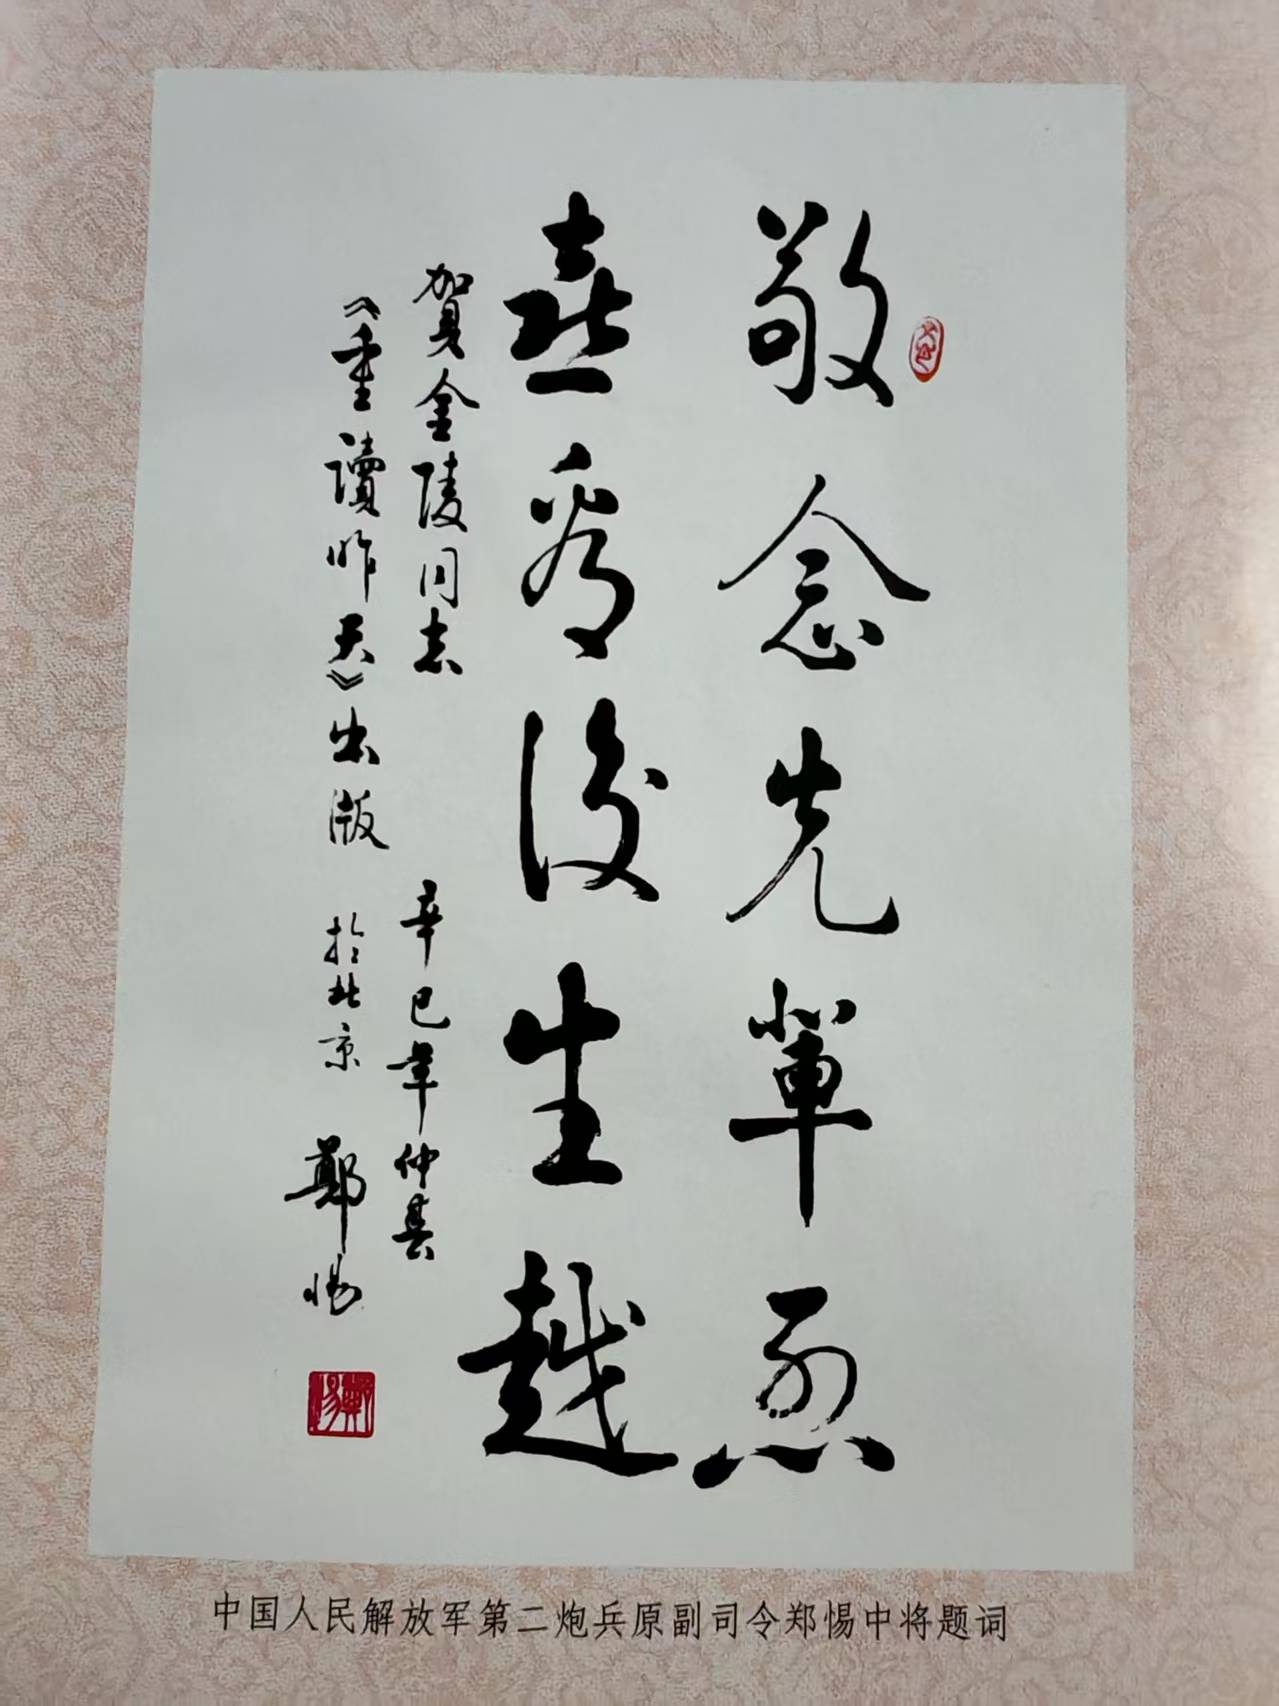 敬念先輩烈
喜看後生越
賀金陵同志
《重讀昨天》出版
辛巳年仲
於北京
鄭惕
鄭惕
中国人民解放军第二炮兵原副司令郑惕中将题词